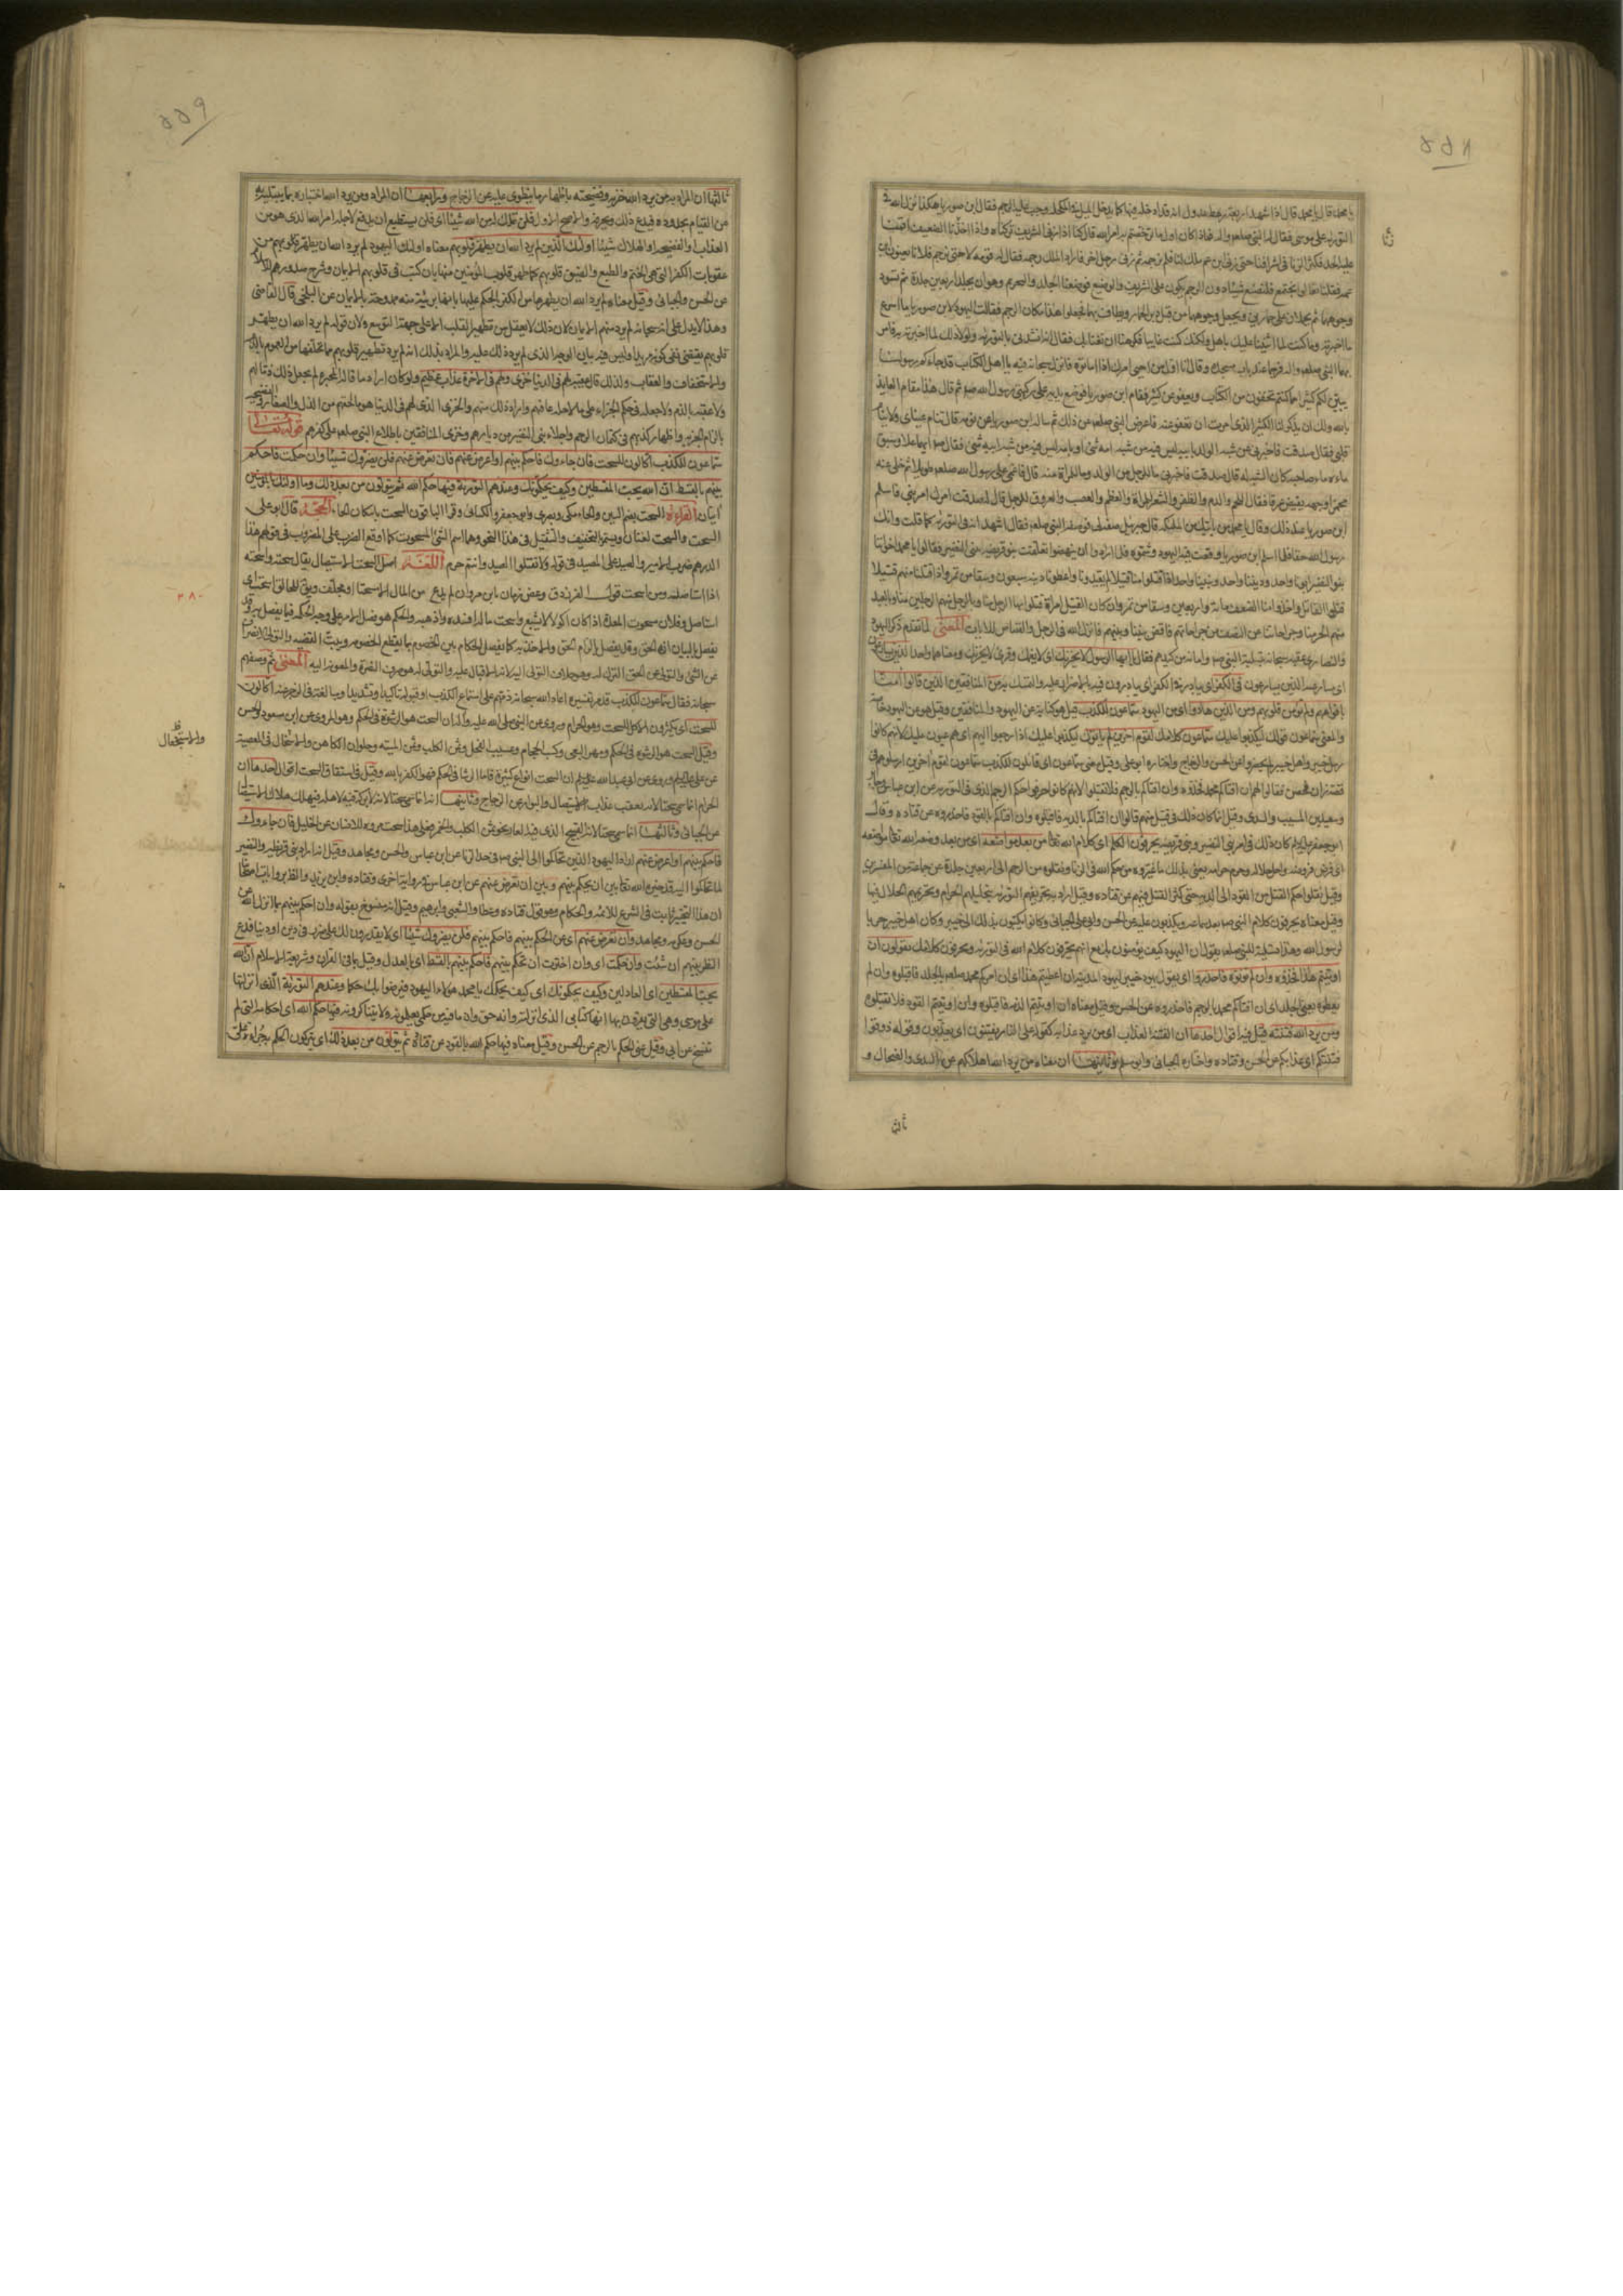 ۵۵۸
يا محمد قال اذا شهد اربعة رهط عدول انه قد ادخله فيها كما يدخل الميل في المكحلة وجب عليه الرجم فقال ابن صوريا هكذا انزل الله في
التورية على موسى فقال له النبي صلعم فماذا كان اول ما ترخصتم به امر الله قال كنا اذا زنى الشريف تركناه واذا اخذنا الضعيف اقمنا
عليه الحد فكثر الزنا في اشرافنا حتى زنى ابن عم ملك لنا فلم نرجمه ثم زنى رجل اخر فاراد الملك رجمه فقال له قومه لا حتى ترجم فلانا يعنون ابن
عمه فقلنا تعالوا نجتمع فلنضع شيئا دون الرجم يكون على الشريف والوضيع فوضعنا الجلد والتحميم وهو ان يجلد اربعين جلدة ثم تسود
وجوههما ثم يحملان على حمارين ويجعل وجوههما من قبل دبر الحمار ويطاف بهما فجعلوا هذا مكان الرجم فقالت اليهود لابن صوريا ما اسرع
ما اخبرته به وما كنت لما اثنينا عليك باهل ولكنك كنت غايبا فكرهنا ان نغتابك فقال انه انشدني بالتورية ولولا ذلك لما اخبرته به فامر
بهما النبي صلعم فرجما عند باب مسجده وقال انا اول من احيى امرك اذا اماتوه فانزل سبحانه فيه يا اهل الكتاب قد جاءكم رسولنا
يبين لكم كثيرا مما كنتم تخفون من الكتاب ويعفو عن كثير فقام ابن صوريا فوضع يديه على ركبتي رسول الله ثم قال هذا مقام العايذ
بالله وبك ان تذكر لنا الكثير الذي امرت ان تعفو عنه فاعرض النبي صلعم عن ذلك ثم ساله ابن صوريا عن نومه فقال تنام عيناي ولا ينام
قلبي فقال صدقت فاخبرني عن شبه الولد بابيه ليس فيه من شبه امه شيء او بامه ليس فيه من شبه ابيه شيء فقال ايهما علا وسبق
ماءه ماء صاحبه كان الشبه له قال صدقت فاخبرني ما للرجل من الولد وما للمراة منه قال فاغمي على رسول الله صلعم طويلا ثم خلي عنه
محمرا وجهه يفيض عرقا فقال اللحم والدم والظفر والشعر للمراة والعظم والعصب والعروق للرجل قال له صدقت امرك امر نبي فاسلم
ابن صوريا عند ذلك وقال يا محمد من ياتيك من الملائكة قال جبريل صفه لي فوصفه النبي صلعم فقال اشهد انه في التورية كما قلت وانك
رسول الله حقا فلما اسلم ابن صوريا وقعت فيه اليهود وشتموه فلما ارادوا ان ينهضوا تعلقت بنو قريظة ببني النضير فقالوا يا محمد اخواننا
بنو النضير ابونا واحد وديننا واحد ونبينا واحد اذا قتلوا منا قتيلا لم يقيدونا واعطونا ديته سبعين وسقا من تمر واذا قتلنا منهم قتيلا
قتلوا القاتل واخذوا منا الضعف مائة واربعين وسقا من تمر وان كان القتيل امراة قتلوا بها الرجل منا وبالرجل منهم الرجلين منا وبالعبد
منهم الحر منا وجراحاتنا على النصف من جراحاتهم فاقض بيننا وبينهم فانزل الله في الرجم والقصاص الايات المعنى لما تقدم ذكر اليهود
والنصارى عقبه سبحانه بتسلية النبي وامانه من كيدهم فقال يا ايها الرسول لا يحزنك اي لا يغمك وقرئ لا يحزنك ومعناهما واحد الذين يسارعون
اي مسارعة الذين يسارعون في الكفر اي يبادرون في الكفر اي يبادرون فيه بالاصرار عليه والتمسك به من المنافقين الذين قالوا امنا
بافواههم ولم تؤمن قلوبهم ومن الذين هادوا اي من اليهود سماعون للكذب قيل هو كناية عن اليهود والمنافقين وقيل هو عن اليهود خاصة
والمعنى سماعون قولك ليكذبوا عليك سماعون كلامك لقوم اخرين لم ياتوك ليكذبوا عليك اذا رجعوا اليهم اي هم عيون عليك لانهم كانوا
رسل خيبر واهل خيبر لم يحضروا عن الحسن والزجاج واختاره ابو علي وقيل معنى سماعون اي قابلون للكذب سماعون لقوم اخرين ارسلوهم في
قصة زان محصن فقالوا لهم ان افتاكم محمد فخذوه وان افتاكم بالرجم فلا تقبلوا لانهم كانوا حرفوا حكم الرجم الذي في التورية عن ابن عباس وجابر
وسعيد بن المسيب والسدي وقيل انما كان ذلك في قتيل منهم قالوا ان افتاكم بالدية فاقبلوه وان افتاكم بالقود فاحذروه عن قتادة وقال
ابو جعفر عليه السلام كان ذلك في امر بني النضير وبني قريظة يحرفون الكلم اي كلام الله تعا من بعد مواضعه اي من بعد وضعه الله تعا مواضعه
اي فرض فروضه واحل حلاله وحرم حرامه يعني بذلك ما غيروه من حكم الله في الزنا ونقلوه من الرجم الى اربعين جلدة عن جماعة من المفسرين
وقيل نقلوا حكم القتل من القود الى الدية حتى كثر القتل فيهم عن قتادة وقيل اراد به تحريفهم التورية بتحليلهم الحرام وتحريمهم الحلال فيها
وقيل معناه يحرفون كلام النبي بعد سماعه ويكذبون عليه عن الحسن وابي علي الجبائي وكانوا يكتبون بذلك الى خيبر وكان اهل خيبر حربا
لرسول الله وهذا تسلية للنبي صلعم يقول ان اليهود كيف يؤمنون بك مع انهم يحرفون كلام الله في التورية ويحرفون كلامك يقولون ان
اوتيتم هذا فخذوه وان لم تؤتوه فاحذروا اي يقول يهود خيبر ليهود المدينة ان اعطيتم هذا اي ان امركم محمد صلعم بالجلد فاقبلوه وان لم
تعطوه يعني الجلد اي ان افتاكم محمد بالرجم فاحذروه عن الحسن وقيل معناه ان اوتيتم الدية فاقبلوه وان اوتيتم القود فلا تقبلوه
ومن يرد الله فتنته قيل فيه اقوال احدها ان الفتنة العذاب اي من يرد عذابه كقوله على النار يفتنون اي يعذبون وقوله ذوقوا
فتنتكم اي عذابكم عن الحسن وقتادة واختاره الجبائي وابو مسلم وثانيها ان معناه من يرد الله اهلاكه عن السدي والضحاك و
ثالثها
۵۵۹
ثالثها ان المراد به من يرد الله خزيه وفضيحته باظهار ما ينطوي عليه عن الزجاج ورابعها ان المراد ومن يرد الله اختباره بما يبتليه به
من القيام بحدوده فيدع ذلك ويحرفه والاصح الاول فلن تملك له من الله شيئا اي فلن يستطيع ان يدفع لاجله امر الله الذي هو من
العذاب والفضيحة والهلاك شيئا اولئك الذين لم يرد الله ان يطهر قلوبهم معناه اولئك اليهود لم يرد الله ان يطهر قلوبهم من
عقوبات الكفر التي هي الختم والطبع والضيق قلوبهم كما طهر قلوب المؤمنين منها بان كتب في قلوبهم الايمان وشرح صدورهم للاسلام
عن الحسن والجبائي وقيل معناه لم يرد الله ان يطهرها من الكفر بالحكم عليها بانها بريئة منه ممدوحة بالايمان عن البلخي قال القاضي
وهذا لا يدل على انه سبحانه لم يرد منهم الايمان لان ذلك لا يعقل من تطهير القلب الا على جهة التوسع ولان قوله لم يرد الله ان يطهر
قلوبهم يقتضي نفي كونه مريدا وليس فيه بيان الوجه الذي لم يرد ذلك عليه والمراد بذلك انه لم يرد تطهير قلوبهم مما يلحقها من الغموم بالذم
والاستخفاف والعقاب ولذلك قال عقيبه لهم في الدنيا خزي ولهم في الاخرة عذاب عظيم ولو كان اراد ما قاله المجبرة لم يجعل ذلك ذما لهم
ولا عقبه بالذم ولا جعله في حكم الجزاء على ما لاجله عاقبهم واراد ذلك منهم والخزي الذي لهم في الدنيا هو ما لحقهم من الذل والصغار والفضيحة
بالزام الجزية واظهار كذبهم في كتمان الرجم واجلاء بني النضير من ديارهم وخزي المنافقين باطلاع النبي صلعم على كفرهم قوله تعالى
سماعون للكذب اكالون للسحت فان جاءوك فاحكم بينهم او اعرض عنهم وان تعرض عنهم فلن يضروك شيئا وان حكمت فاحكم
بينهم بالقسط ان الله يحب المقسطين وكيف يحكمونك وعندهم التورية فيها حكم الله ثم يتولون من بعد ذلك وما اولئك بالمؤمنين
ايتان القراءة السحت بضم السين والحاء مكي وبصري وابو جعفر والكسائي وقرا الباقون السحت باسكان الحاء الحجة قال ابو علي
السحت والسحت لغتان ويستمر التخفيف والتثقيل في هذا النحو وهما اسم الشيء المسحوت كما اوقع الضرب على المضروب في قولهم هذا
الدرهم ضرب الامير والصيد على المصيد في قوله لا تقتلوا الصيد وانتم حرم اللغة اصل السحت الاستيصال يقال سحته واسحته
اذا استاصله ومن اسحت قول الفرزدق وعض زمان يابن مروان لم يدع من المال الا مسحتا او مجلف ويقال للحالق اسحت اي
استاصل وفلان مسحوت المعدة اذا كان اكولا لا يشبع واسحت ماله افسده واذهبه والحكم هو فصل الامر على وجه الحكمة فيما يفصل به وقد
يفصل بالبيان انه الحق وقد يفصل بالزام الحق والاخذ به كما يفصل الحكام بين الخصوم بما يقطع الخصومة ويثبت القضية والتولي الانصراف
عن الشيء والتولي عن الحق الترك له وهو خلاف التولي اليه لانه الاقبال عليه والتولي له هو صرف النصرة والمعونة اليه المعنى ثم وصفهم
سبحانه فقال سماعون للكذب قد مر تفسيره اعاد الله سبحانه ذمهم على استماع الكذب او قبوله تاكيدا وتشديدا ومبالغة في الزجر عنه اكالون
للسحت اي يكثرون الاكل للسحت وهو الحرام وروي عن النبي صلى الله عليه وآله ان السحت هو الرشوة في الحكم وهو المروي عن ابن مسعود والحسن
وقيل السحت هو الرشوة في الحكم ومهر البغي وكسب الحجام وعسيب الفحل وثمن الكلب وثمن الميتة وحلوان الكاهن والاستعمال في المعصية
عن علي عليه السلام وروي عن ابي عبد الله عليه السلام ان السحت انواع كثيرة فاما الرشا في الحكم فهو الكفر بالله وقيل في اشتقاق السحت اقوال احدها ان
الحرام انما سمي سحتا لانه يعقب عذاب الاستيصال والبوار عن الزجاج وثانيها انه انما سمي سحتا لانه لا بركة فيه لاهله فيهلك هلاك الاستيصال
عن الجبائي وثالثها انما سمي سحتا لانه القبيح الذي فيه العار نحو ثمن الكلب والخمر فعلى هذا يسحت مروة الانسان عن الخليل فان جاءوك
فاحكم بينهم او اعرض عنهم اراد به اليهود الذين تحاكموا الى النبي في حد الزنا عن ابن عباس والحسن ومجاهد وقيل اراد به بني قريظة والنضير
لما تحاكموا اليه فخيره الله تعا بين ان يحكم بينهم وبين ان يعرض عنهم عن ابن عباس في رواية اخرى وقتادة وابن زيد والظاهر في روايات اصحابنا
ان هذا التخيير ثابت في الشرع للائمة والحكام وهو قول قتادة وعطا والشعبي وابراهيم وقيل انه منسوخ بقوله وان احكم بينهم بما انزل الله عن
الحسن وعكرمة ومجاهد وان تعرض عنهم اي عن الحكم بينهم فاحكم بينهم فلن يضروك شيئا اي لا يقدرون لك على ضر في دين او دنيا فدع
النظر بينهم ان شئت وان حكمت اي وان اخترت ان تحكم بينهم فاحكم بينهم بالقسط اي بالعدل وقيل بما في القرآن وشريعة الاسلام ان الله
يحب المقسطين اي العادلين وكيف يحكمونك اي كيف يحكمك يا محمد هؤلاء اليهود فيرضوا بك حكما وعندهم التورية التي انزلتها
على موسى وهي التي يقرون بها انها كتابي الذي انزلته وانه حق وان ما فيه من حكمي يعلمونه ولا يتناكرونه فيها حكم الله اي احكامه التي لم
تنسخ عن ابي علي وقيل يعني الحكم بالرجم عن الحسن وقيل معناه فيها حكم الله بالقود عن قتادة ثم يتولون من بعد ذلك اي يتركون الحكم به جراة علي
والاستعمال
۳۸۰